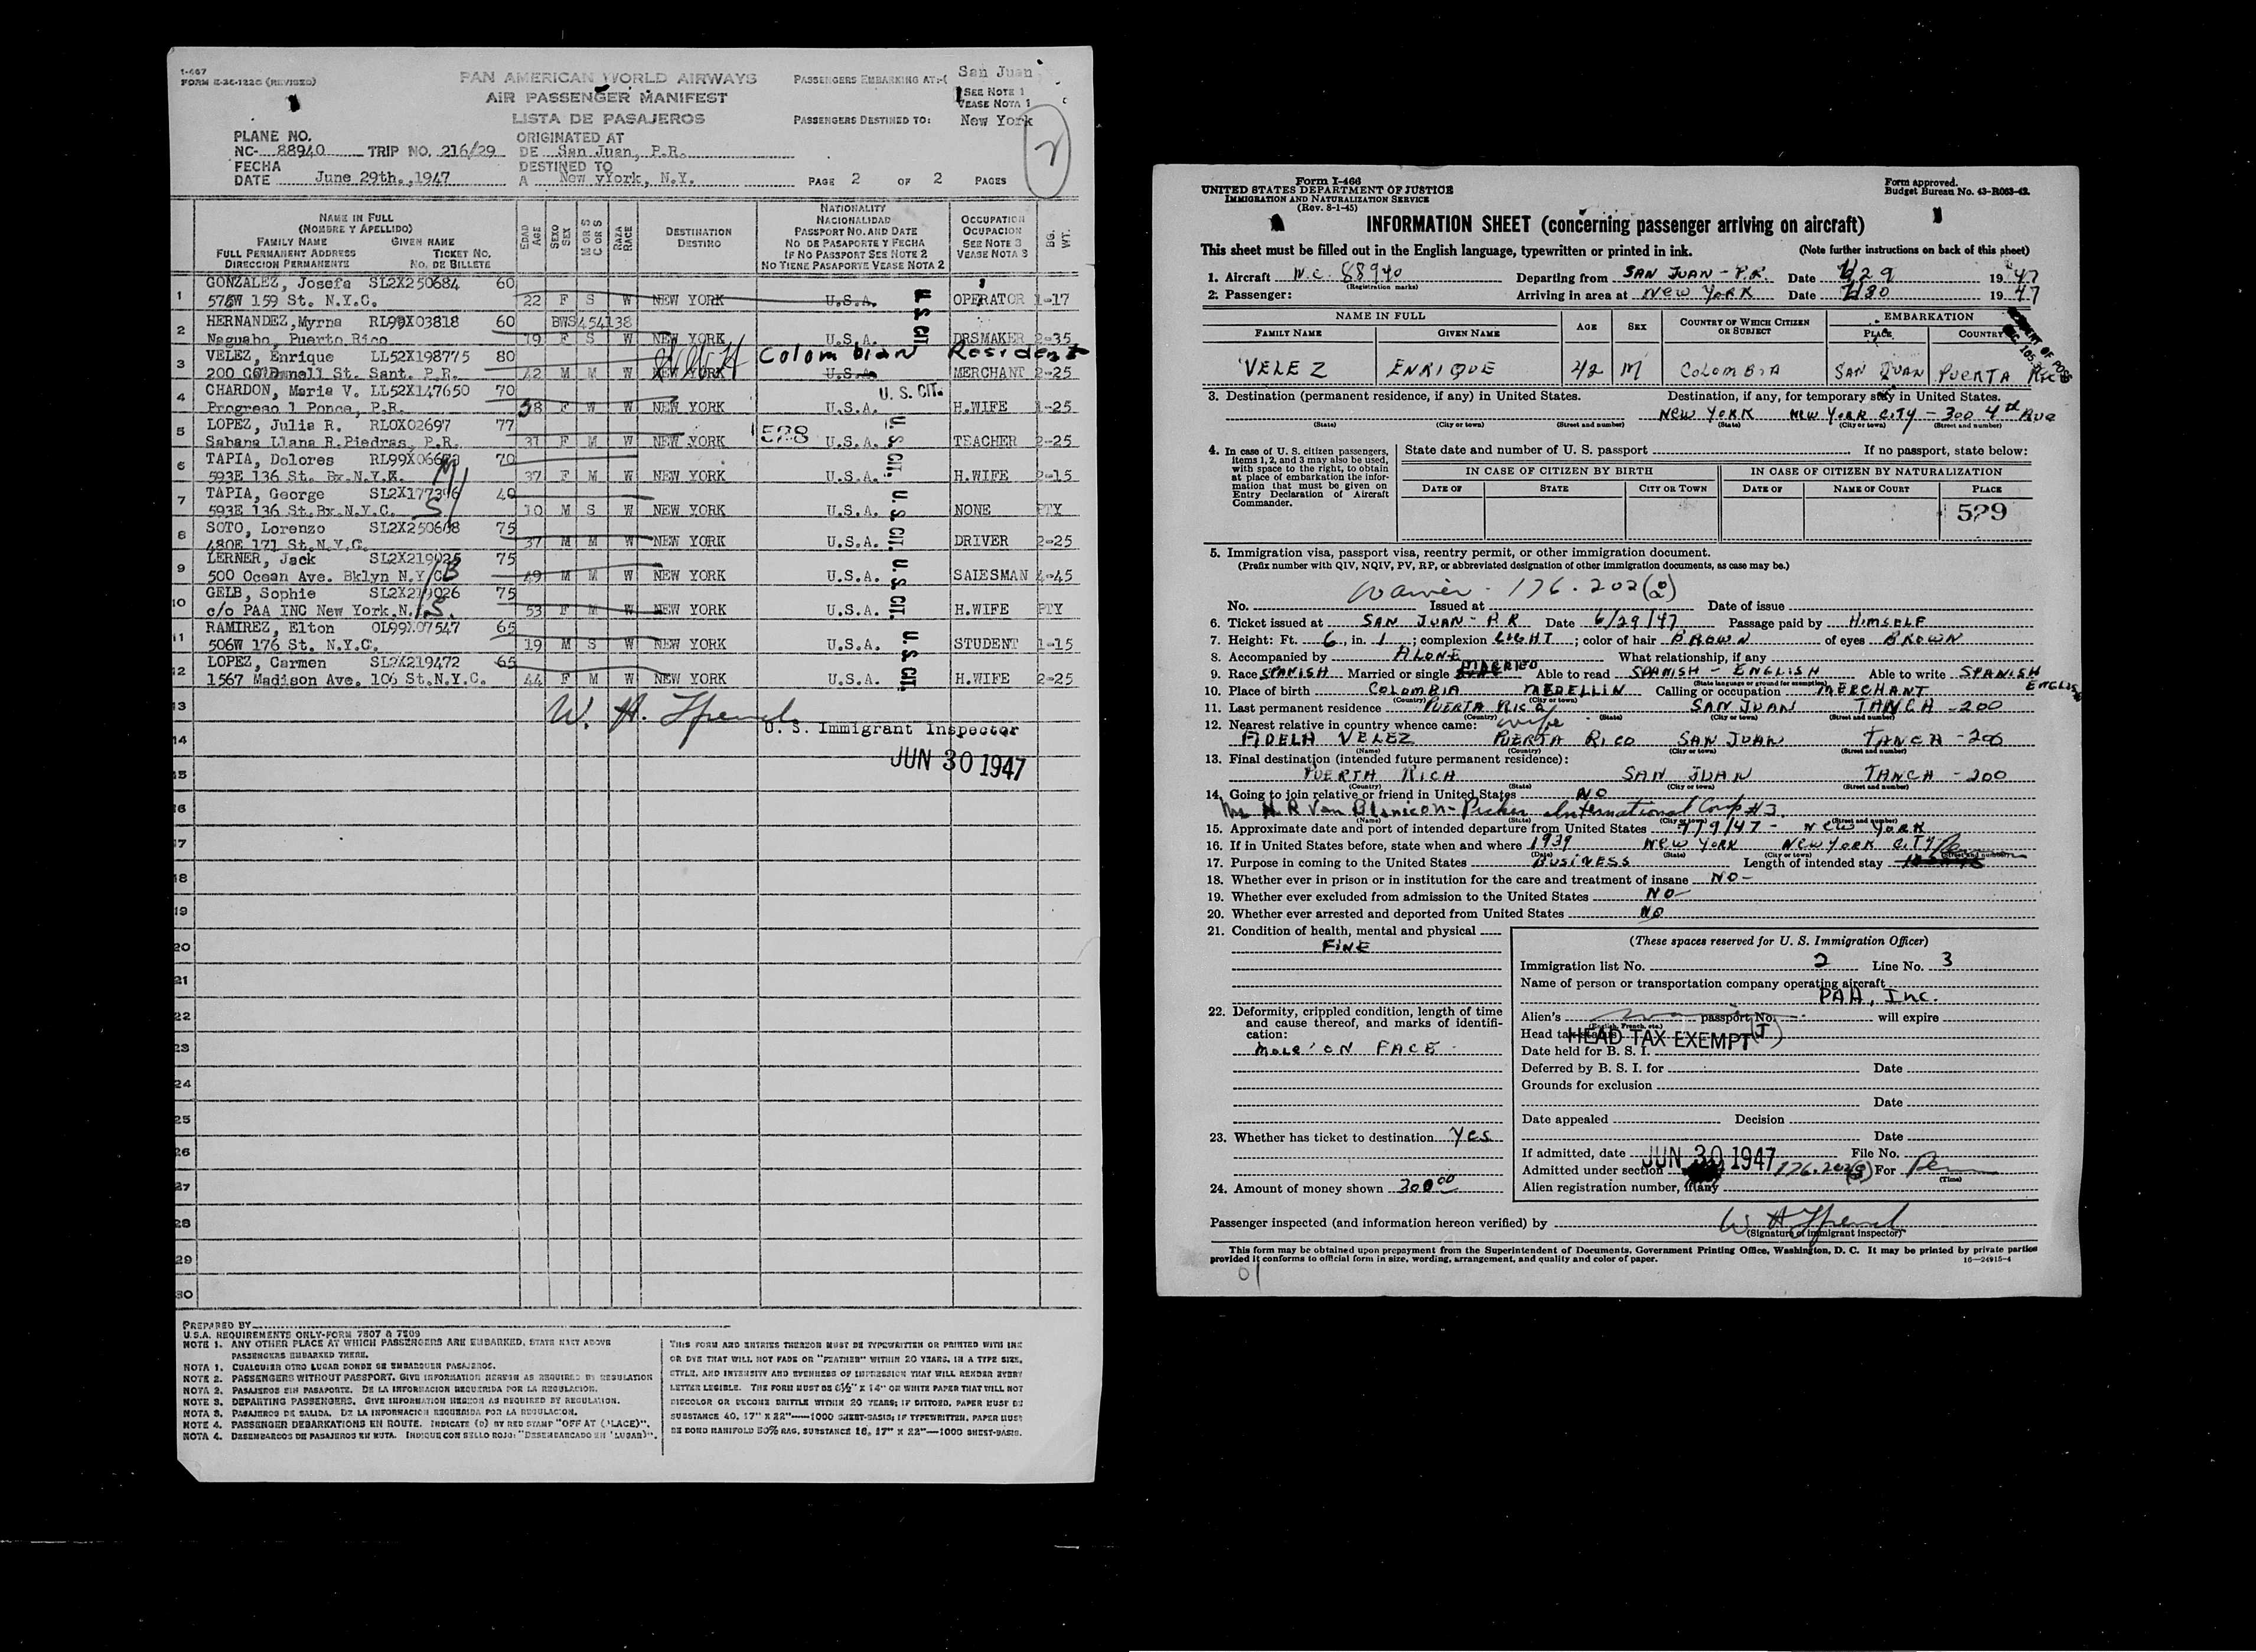 1-467
FORM E-26-122C (REVISED)
PAN AMERICAN WORLD AIRWAYS
AIR PASSENGER MANIFEST
LISTA DE PASAJEROS
PASSENGERS EMBARKING AT:-( San Juan
SEE NOTE 1
VEASE NOTA 1
PASSENGERS DESTINED TO: New York
2
PLANE NO.
NC- 88940 TRIP NO. 216/29
ORIGINATED AT
DE San Juan, P.R.
FECHA
DATE June 29th.,1947
DESTINED TO
A New york, N.Y.
PAGE 2 OF 2 PAGES
NAME IN FULL
(NOMBRE Y APELLIDO)
FAMILY NAME GIVEN NAME
FULL PERMANENT ADDRESS TICKET NO.
DIRECCION PERMANENTE NO. DE BILLETE
EDAD AGE
SEXO SEX
M OR S C OR S
RAZA RACE
DESTINATION
DESTINO
NATIONALITY
NACIONALIDAD
PASSPORT NO. AND DATE
NO DE PASAPORTE Y FECHA
IF NO PASSPORT SEE NOTE 2
NO TIENE PASAPORTE VEASE NOTA 2
OCCUPATION
OCUPACION
SEE NOTE 3
VEASE NOTA 3
BG. WT.
1 GONZALEZ, Josefa SL2X250684 60
576W 159 St. N.Y.C. 22 F S W NEW YORK U.S.A. U.S.CIT. OPERATOR 1-17
2 HERNANDEZ,Myrna RL99X03818 60 BWS454138
Naguabo, Puerto Rico 19 F S W NEW YORK U.S.A. DRSMAKER 2-35
3 VELEZ, Enrique LL52X198775 80 Colombian Resident
200 St. Sant. P.R. 42 M M W NEW YORK U.S.A. MERCHANT 2-25
4 CHARDON, Maria V. LL52X147650 70 U.S. CIT.
Progreso 1 Ponce, P.R. 58 F W W NEW YORK U.S.A. H.WIFE 1-25
5 LOPEZ, Julia R. RLOX02697 77 528
Sabana Llana R.Piedras, P.R. 31 F M W NEW YORK U.S.A. U.S CIT. TEACHER 2-25
6 TAPIA, Dolores 70
593E 136 St. Bx.N.Y.C. 37 F M W NEW YORK U.S.A. H.WIFE 2-15
7 TAPIA, George SL2X177396 40
593E 136 St.Bx.N.Y.C. 10 M S W NEW YORK U.S.A. U.S CIT. NONE PTY
8 SOTO, Lorenzo SL2X250608 75
480E 171 St.N.Y.C. 37 M M W NEW YORK U.S.A. DRIVER 2-25
9 LERNER, Jack SL2X219025 75
500 Ocean Ave. Bklyn N.Y.C. 49 M M W NEW YORK U.S.A. U.S CIT. SALESMAN 4-45
10 GELB, Sophie SL2X219026 75
c/o PAA INC New York,N. 53 F M W NEW YORK U.S.A. H.WIFE PTY
11 RAMIREZ, Elton OL99X07547 65
506W 176 St. N.Y.C. 19 M S W NEW YORK U.S.A. U.S CIT. STUDENT 1-15
12 LOPEZ, Carmen SL2X219472 65
1567 Madison Ave. 106 St.N.Y.C. 44 F M W NEW YORK U.S.A. H.WIFE 2-25
13
W. H.
U. S. Immigrant Inspector
14
JUN 30 1947
15
16
17
18
19
20
21
22
23
24
25
26
27
28
29
30
PREPARED BY
U.S.A. REQUIREMENTS ONLY-FORM 7507 & 7509
NOTE 1. ANY OTHER PLACE AT WHICH PASSENGERS ARE EMBARKED, STATE NEXT ABOVE
PASSENGERS EMBARKED THERE.
NOTA 1. CUALQUIER OTRO LUGAR DONDE SE EMBARQUEN PASAJEROS.
NOTE 2. PASSENGERS WITHOUT PASSPORT. GIVE INFORMATION HEREON AS REQUIRED BY REGULATION
NOTA 2. PASAJEROS SIN PASAPORTE. DE LA INFORMACION REQUERIDA POR LA REGULACION.
NOTE 3. DEPARTING PASSENGERS. GIVE INFORMATION HEREON AS REQUIRED BY REGULATION.
NOTA 3. PASAJEROS DE SALIDA. DE LA INFORMACION REQUERIDA POR LA REGULACION.
NOTE 4. PASSENGER DEBARKATIONS EN ROUTE. INDICATE (D) BY RED STAMP "OFF AT (PLACE)".
NOTA 4. DESEMBARCOS DE PASAJEROS EN RUTA. INDIQUE CON SELLO ROJO: "DESEMBARCADO EN 'LUGAR)".
THIS FORM AND ENTRIES THEREON MUST BE TYPEWRITTEN OR PRINTED WITH INK
OR DYE THAT WILL NOT FADE OR "FEATHER" WITHIN 20 YEARS, IN A TYPE SIZE,
STYLE, AND INTENSITY AND EVENNESS OF IMPRESSION THAT WILL RENDER EVERY
LETTER LEGIBLE. THE FORM MUST BE 8½" X 14" ON WHITE PAPER THAT WILL NOT
DISCOLOR OR BECOME BRITTLE WITHIN 20 YEARS; IF DITTOED, PAPER MUST BE
SUBSTANCE 40, 17" X 22"—1000 SHEET-BASIS; IF TYPEWRITTEN, PAPER MUST
BE BOND MANIFOLD 50% RAG, SUBSTANCE 16, 17" X 22"—1000 SHEET-BASIS.
Form I-466
UNITED STATES DEPARTMENT OF JUSTICE
IMMIGRATION AND NATURALIZATION SERVICE
(Rev. 8-1-45)
Form approved.
Budget Bureau No. 43-R063-42.
INFORMATION SHEET (concerning passenger arriving on aircraft)
This sheet must be filled out in the English language, typewritten or printed in ink. (Note further instructions on back of this sheet)
1. Aircraft N.C. 88940 Departing from SAN JUAN - P.R. Date 6/29 1947
(Registration marks)
2. Passenger: Arriving in area at NEW YORK Date 6/30 1947
NAME IN FULL AGE SEX COUNTRY OF WHICH CITIZEN OR SUBJECT EMBARKATION
FAMILY NAME GIVEN NAME PLACE COUNTRY
VELEZ ENRIQUE 42 M COLOMBIA SAN JUAN PUERTA RICO
3. Destination (permanent residence, if any) in United States. Destination, if any, for temporary stay in United States.
NEW YORK NEW YORK CITY - 300 4th Ave
(State) (City or town) (Street and number) (State) (City or town) (Street and number)
4. In case of U. S. citizen passengers, items 1, 2, and 3 may also be used, with space to the right, to obtain at place of embarkation the information that must be given on Entry Declaration of Aircraft Commander.
State date and number of U. S. passport If no passport, state below:
IN CASE OF CITIZEN BY BIRTH IN CASE OF CITIZEN BY NATURALIZATION
DATE OF STATE CITY OR TOWN DATE OF NAME OF COURT PLACE
529
5. Immigration visa, passport visa, reentry permit, or other immigration document.
(Prefix number with QIV, NQIV, PV, RP, or abbreviated designation of other immigration documents, as case may be.)
Waiver - 176.202(
No. Issued at Date of issue
6. Ticket issued at SAN JUAN - P R Date 6/29/47 Passage paid by HIMSELF
7. Height: Ft. 6, in. 1; complexion LIGHT; color of hair BROWN of eyes BROWN
8. Accompanied by ALONE What relationship, if any
9. Race SPANISH Married or single MARRIED Able to read SPANISH - ENGLISH Able to write SPANISH ENGLISH
(State language or ground for exemption)
10. Place of birth COLOMBIA MEDELLIN Calling or occupation MERCHANT
(Country) (City or town)
11. Last permanent residence PUERTA RICO SAN JUAN TANCA - 200
(Country) (State) (City or town) (Street and number)
12. Nearest relative in country whence came: wife
FIDELA VELEZ PUERTA RICO SAN JUAN TANCA - 200
(Name) (Country) (City or town) (Street and number)
13. Final destination (intended future permanent residence):
PUERTA RICA SAN JUAN TANCA - 200
(Country) (State) (City or town) (Street and number)
14. Going to join relative or friend in United States NO
International Corp #3
(Name) (State) (City or town) (Street and number)
15. Approximate date and port of intended departure from United States 7/9/47 - NEW YORK
16. If in United States before, state when and where 1939 NEW YORK NEW YORK CITY
(Date) (State) (City or town) (Street and number)
17. Purpose in coming to the United States BUSINESS Length of intended stay
18. Whether ever in prison or in institution for the care and treatment of insane NO -
19. Whether ever excluded from admission to the United States NO
20. Whether ever arrested and deported from United States NO
21. Condition of health, mental and physical
FINE
22. Deformity, crippled condition, length of time and cause thereof, and marks of identification:
MOLE ON FACE
23. Whether has ticket to destination Yes
24. Amount of money shown 300.00
(These spaces reserved for U. S. Immigration Officer)
Immigration list No. 2 Line No. 3
Name of person or transportation company operating aircraft
PAA, Inc.
Alien's passport No. will expire
(English, French, etc.)
Head tax HEAD TAX EXEMPT (J)
Date held for B. S. I.
Deferred by B. S. I. for Date
Grounds for exclusion
Date
Date appealed Decision
Date
If admitted, date JUN 30 1947 File No.
Admitted under section 176.202 For Perm
(Time)
Alien registration number, if any
Passenger inspected (and information hereon verified) by W H
(Signature of immigrant inspector)
This form may be obtained upon prepayment from the Superintendent of Documents, Government Printing Office, Washington, D. C. It may be printed by private parties
provided it conforms to official form in size, wording, arrangement, and quality and color of paper. 16—24915-4
01